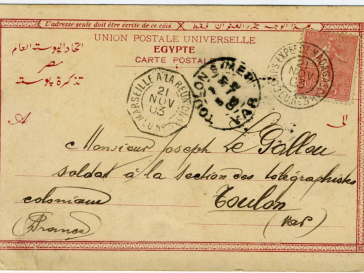 L'adresse seule doit être écrite de ce côté
UNION POSTALE UNIVERSELLE
EGYPTE
CARTE POSTALE
اتحاد البوستة العام
مصر
تذكرة بوستة
MARSEILLE A LA RÉUNION
21
NOV
03
TOULON S MER
VAR
A
الى
Monsieur Joseph Le Gallou
soldat à la section des télégraphistes
coloniaux
Toulon
(France)
(Var)